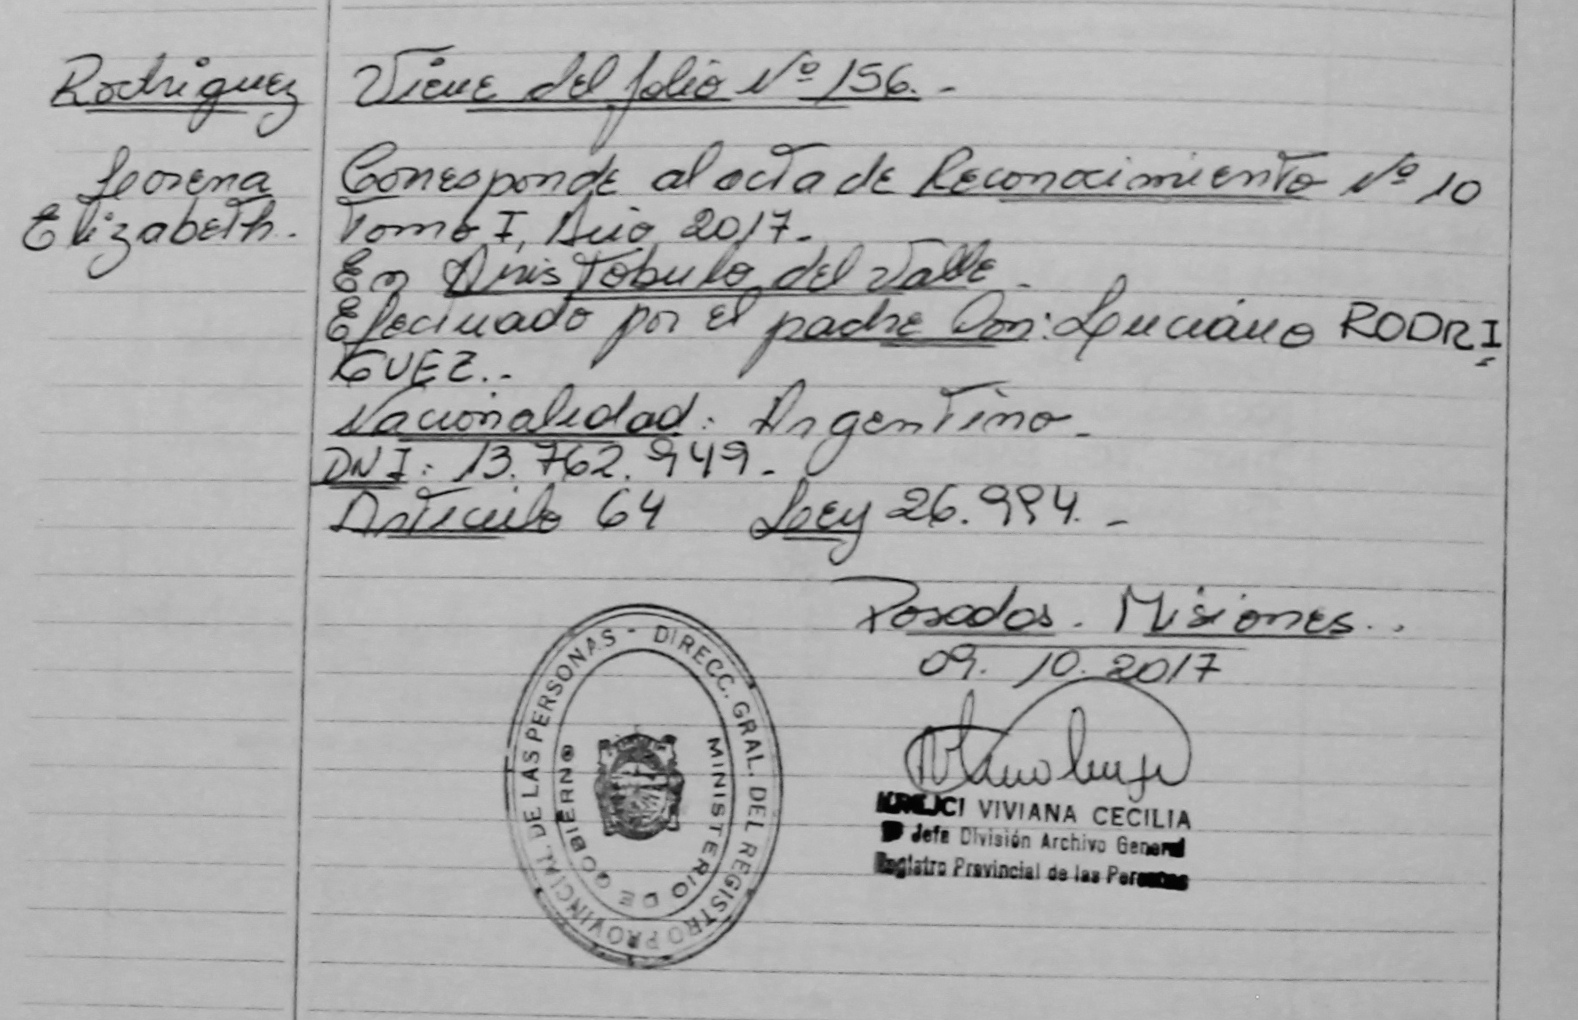 Rodriguez
Lorena
Elizabeth.
Viene del folio Nº 156.-
Corresponde al acta de Reconocimiento Nº 10
Tomo I, Año 2017.-
En Aris Tobulo del Valle.
Efectuado por el padre Don: Luciano RODRI
GUEZ.-
Nacionalidad: Argentino.
DNI: 13.762.949.-
Articulo 64 Ley 26.994.-
Posadas. Misiones..
09.10.2017
KREJCI VIVIANA CECILIA
Jefa División Archivo General
Registro Provincial de las Personas
DIRECC. GRAL. DEL REGISTRO PROVINCIAL DE LAS PERSONAS -
MINISTERIO DE GOBIERNO